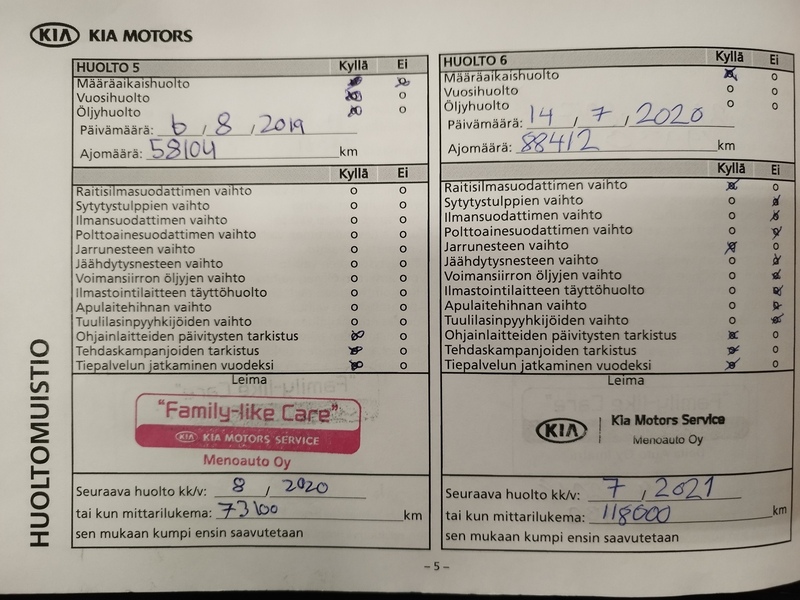 KIA KIA MOTORS
HUOLTO 5 Kyllä Ei
Määräaikaishuolto
Vuosihuolto
Öljyhuolto
Päivämäärä: 6 / 8 / 2019
Ajomäärä: 58104 km
Kyllä Ei
Raitisilmasuodattimen vaihto
Sytytystulppien vaihto
Ilmansuodattimen vaihto
Polttoainesuodattimen vaihto
Jarrunesteen vaihto
Jäähdytysnesteen vaihto
Voimansiirron öljyjen vaihto
Ilmastointilaitteen täyttöhuolto
Apulaitehihnan vaihto
Tuulilasinpyyhkijöiden vaihto
Ohjainlaitteiden päivitysten tarkistus
Tehdaskampanjoiden tarkistus
Tiepalvelun jatkaminen vuodeksi
Leima
"Family-like Care"
KIA KIA MOTORS SERVICE
Menoauto Oy
Seuraava huolto kk/v: 8 / 2020
tai kun mittarilukema: 73100 km
sen mukaan kumpi ensin saavutetaan
HUOLTO 6 Kyllä Ei
Määräaikaishuolto
Vuosihuolto
Öljyhuolto
Päivämäärä: 14 / 7 / 2020
Ajomäärä: 88412 km
Kyllä Ei
Raitisilmasuodattimen vaihto
Sytytystulppien vaihto
Ilmansuodattimen vaihto
Polttoainesuodattimen vaihto
Jarrunesteen vaihto
Jäähdytysnesteen vaihto
Voimansiirron öljyjen vaihto
Ilmastointilaitteen täyttöhuolto
Apulaitehihnan vaihto
Tuulilasinpyyhkijöiden vaihto
Ohjainlaitteiden päivitysten tarkistus
Tehdaskampanjoiden tarkistus
Tiepalvelun jatkaminen vuodeksi
Leima
KIA Kia Motors Service
Menoauto Oy
Seuraava huolto kk/v: 7 / 2021
tai kun mittarilukema: 118000 km
sen mukaan kumpi ensin saavutetaan
HUOLTOMUISTIO
– 5 –